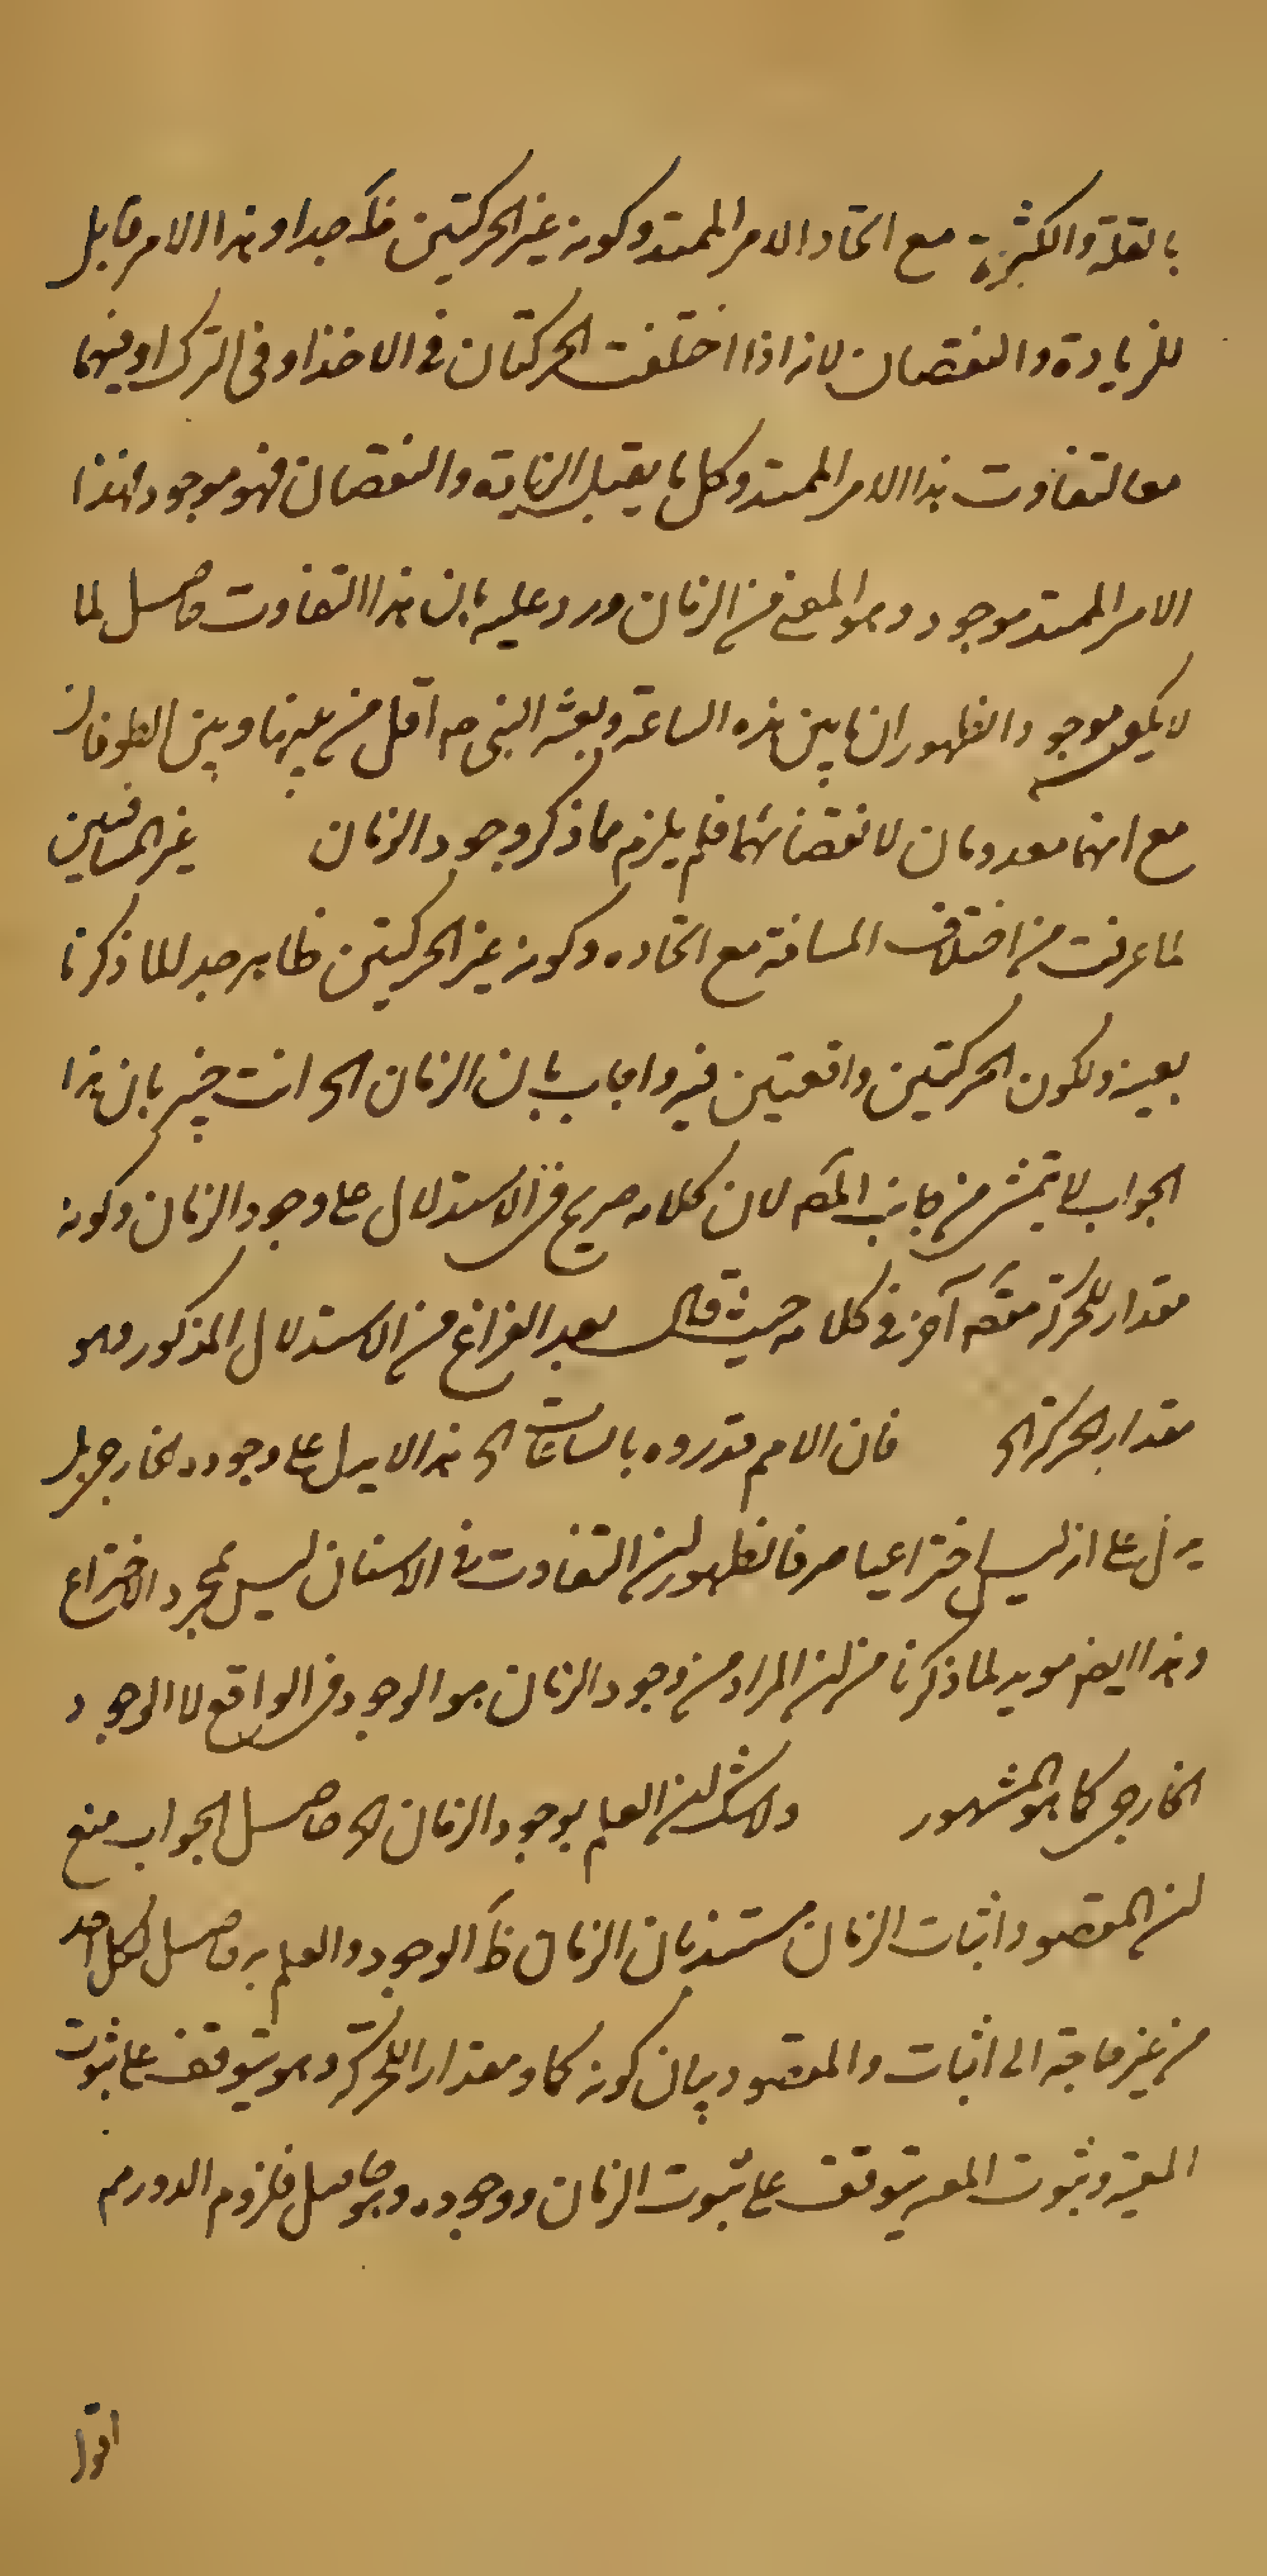 بالقلة والكثرة مع اتحاد الامر الممتد وكونه غير الحركتين فظَ جدا وهذا الامر قابل
للزيادة والنقصان لانه اذا اختلفت الحركتان فى الاخذ او فى الترك او فيهما
معا لتفاوت هذا الامر الممتد وكل ما يقبل الزيادة والنقصان فهو موجود فهذا
الامر الممتد موجود وهو المعنى من الزمان ورد عليه بان هذا التفاوت حاصل لما
لا يكون موجودا لظهور ان ما بين هذه الساعة وبعثة النبى صم اقل من ما بينها وبين الطوفان
مع انهما معدومان لانقضائهما فلم يلزم مما ذكر وجود الزمان غير المسافتين
لما عرفت من اختلاف المسافة مع اتحاده وكونه غير الحركتين ظاهر جدا لما ذكرنا
بعينه ولكون الحركتين واقعتين فيه واجاب بان الزمان الخ انت خبير بان هذا
الجواب لا يتمشى من جانب المصَ لان كلامه صريح فى الاستدلال على وجود الزمان وكونه
مقدار للحركة مقصَ آخر فى كلامه حيث قال بعد الفراغ من الاستدلال المذكور وهو
مقدار الحركة الخ فان الامم قدروه بالساعات الخ هذا لا يدل على وجوده الخارجى بل
يدل على انه ليس اختراعيا صرفا لظهور ان التفاوت فى الاسنان ليس بمجرد الاختراع
وهذا ايضا مويد لما ذكرنا من ان المراد من وجود الزمان هو الوجود فى الواقع لا الوجود
الخارجى كما هو المشهور ولا شك ان العلم بوجود الزمان الخ حاصل الجواب منع
ان المقصود اثبات الزمان مستندا بان الزمان ظَ الوجود والعلم به حاصل لكل احد
من غير حاجة الى اثبات والمقصود بيان كونه كما ومقدارا للحركة وهو يتوقف على ثبوت
المعية وثبوت المعية يتوقف على ثبوت الزمان ووجوده وهو حاصل فلزوم الدور مم
اقول